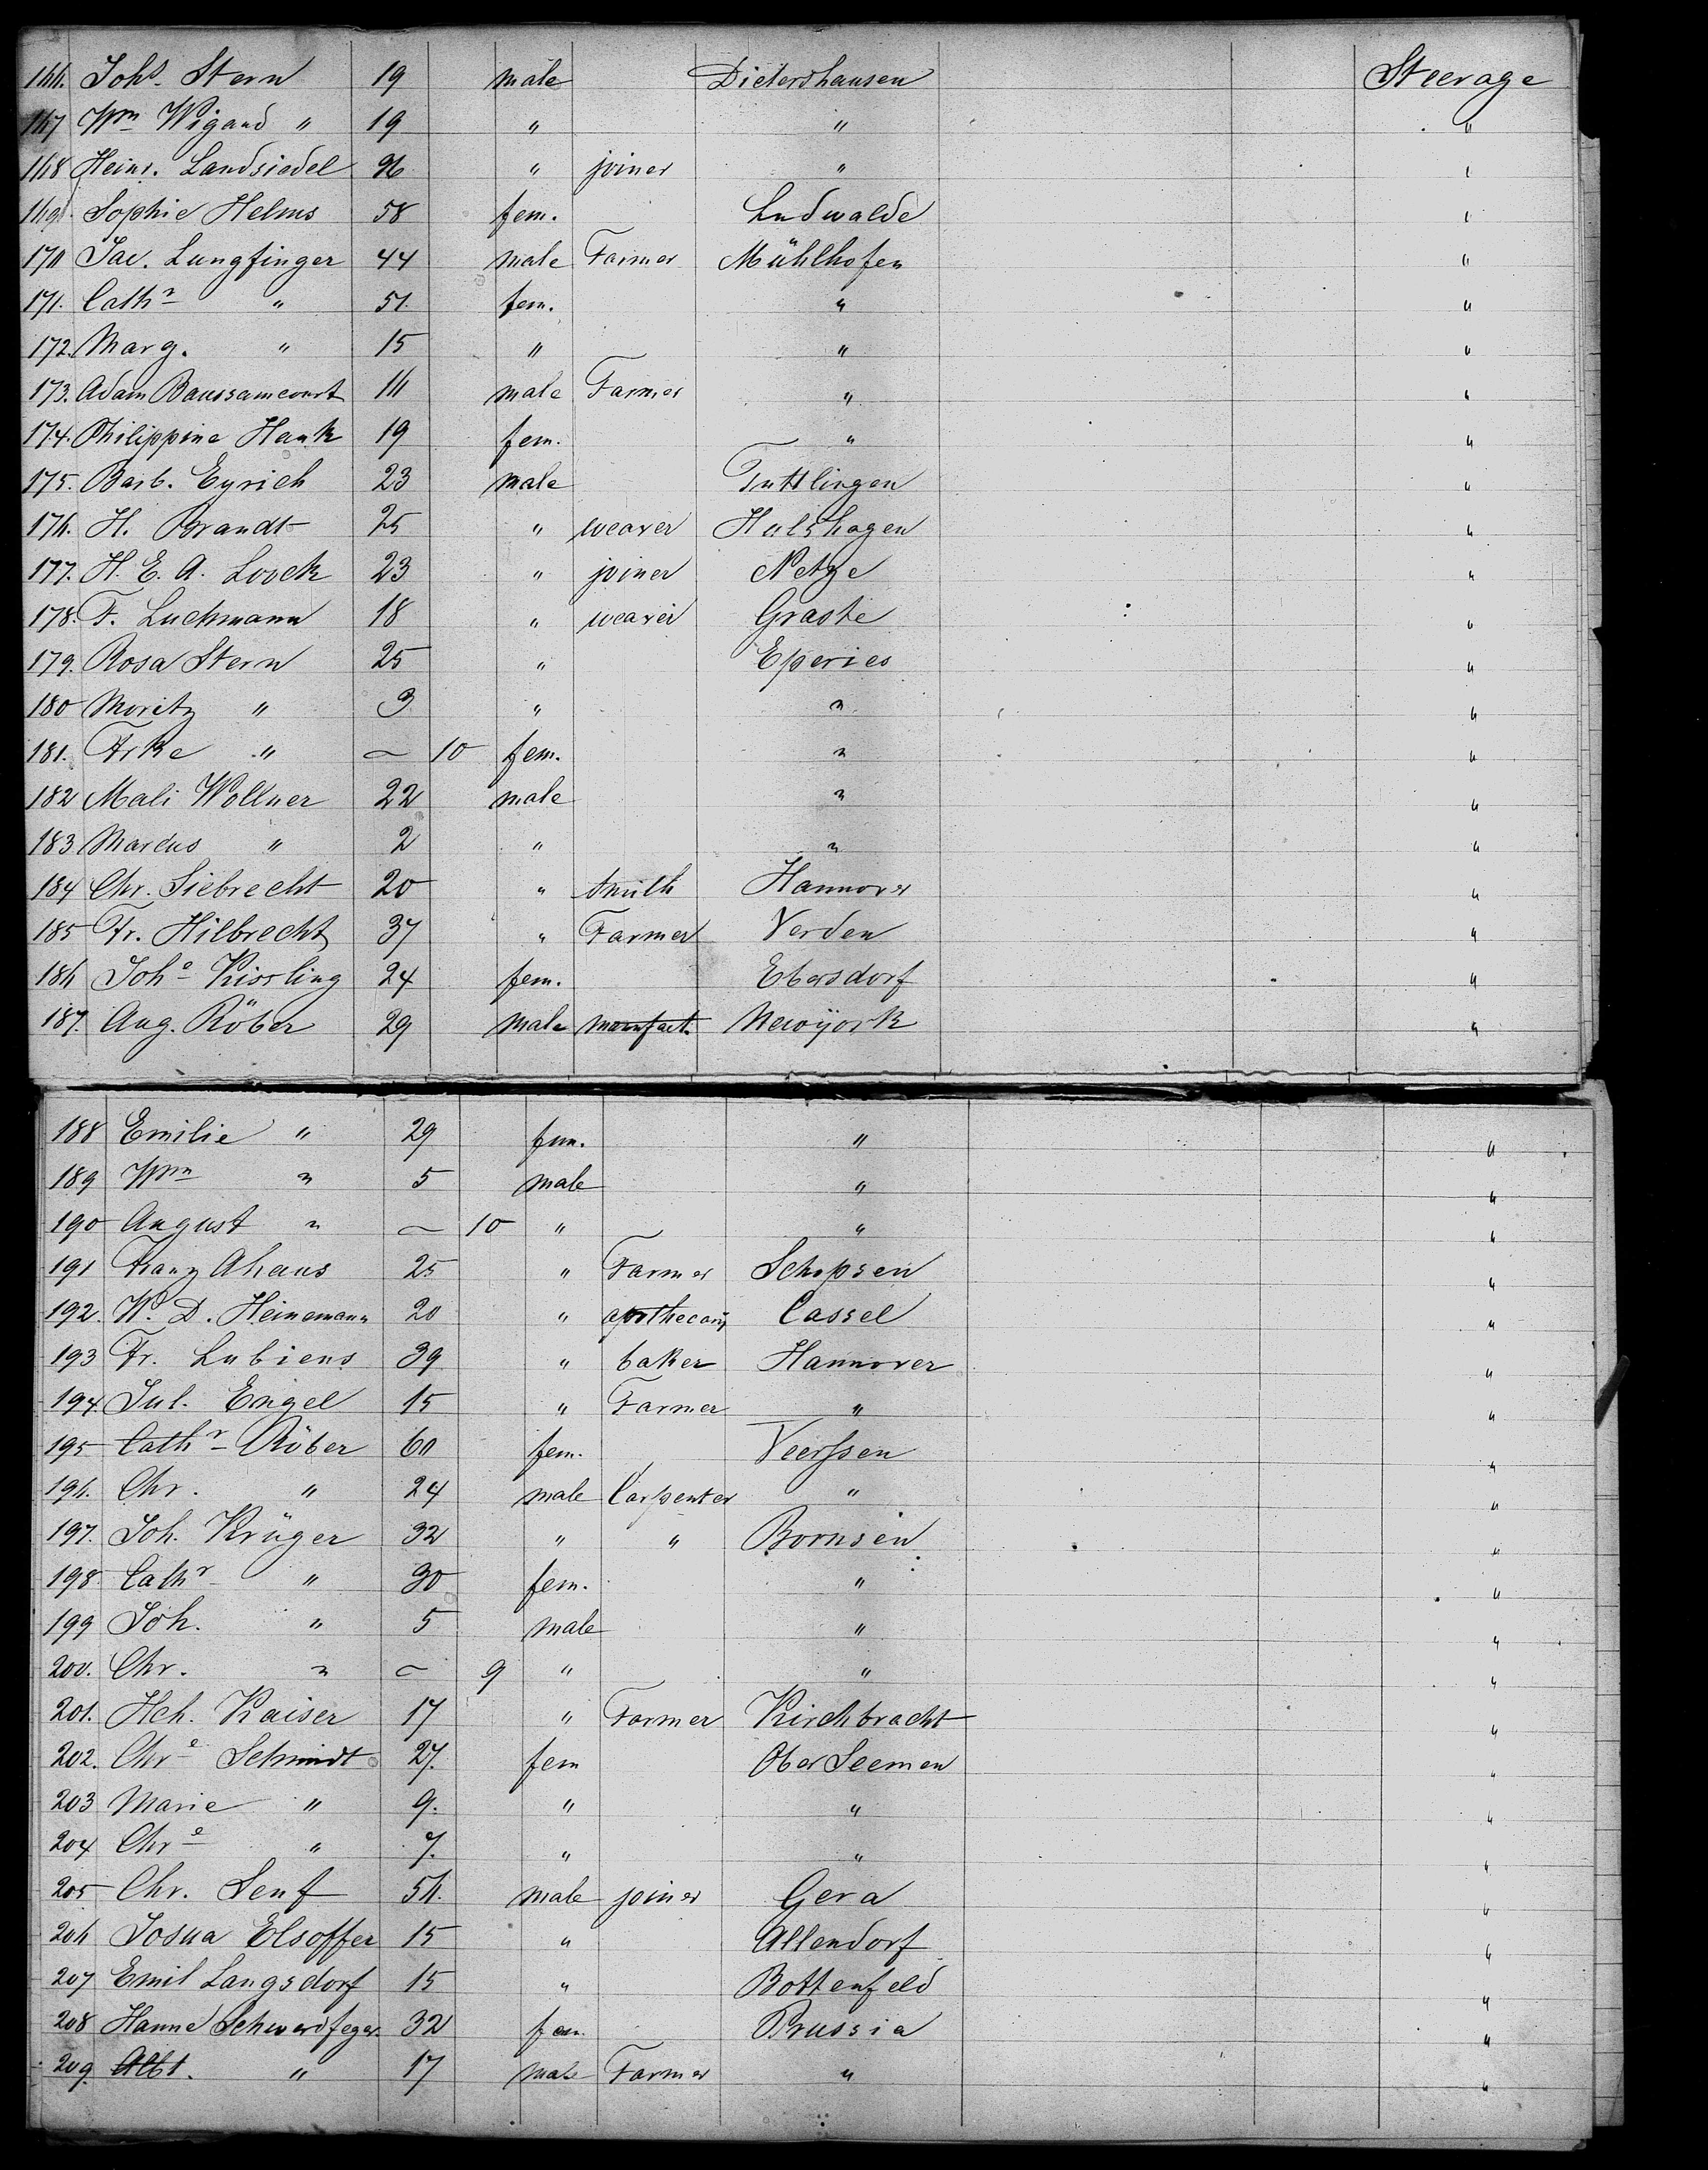 166. Johs. Stern 19 male Dietershausen Steerage
167 Wm Wigand " 19 " " "
168 Heinr. Landsiedel 26 " joiner " "
169. Sophie Helms 58 fem. Ludwalde "
170 Jac. Lungfinger 44 male Farmer Mühlhofen "
171. Cathr " 51. fem. " "
172. Marg. " 15 " " "
173. Adam Baussamcourt 16 male Farmer " "
174. Philippine Hauk 19 fem. " "
175. Barb. Eyrich 23 male Tuttlingen "
176. H. Brandt 25 " weaver Hulshagen "
177. H. E. A. Loock 23 " joiner Netze "
178. F. Luckmann 18 " weaver Graste "
179. Rosa Stern 25 " Eperies "
180 Moritz " 3 " " "
181. Frke " — 10 fem. " "
182 Mali Wollner 22 male " "
183 Marcus " 2 " " "
184 Chr. Siebrecht 20 " smith Hannover "
185 Fr. Hilbrecht 37 " Farmer Verden "
186 Johe Kissling 24 fem. Ebersdorf "
187. Aug. Röber 29 male manufact. Newÿork "
188 Emilie " 29 fem. " "
189 Wm " 5 male " "
190 August " — 10 " " "
191 Franz Ahaus 25 " Farmer Schepsen "
192. W. D. Heinemann 20 " apothecary Cassel "
193 Fr. Lubiens 39 " baker Hannover "
194. Jul. Engel 15 " Farmer " "
195 Cathr Röber 60 fem. Veerssen "
196. Chr. " 24 male Carpenter " "
197. Joh. Krüger 32 " " Bornsen "
198 Cathr " 30 fem. " "
199 Joh. " 5 male " "
200. Chr. " — 9 " " "
201. Hch. Kaiser 17 " Farmer Kirchbracht "
202. Chre Schmidt 27. fem Ober Seemen "
203 Marie " 9. " " "
204 Chre " 7. " " "
205 Chr. Senf 56. male joiner Gera "
206 Josua Elsoffer 15 " Allendorf "
207 Emil Langsdorf 15 " Bottenfeld "
208 Hanne Schwerdfeger. 32 fem. Prussia "
209. Albt. " 17 male Farmer " "